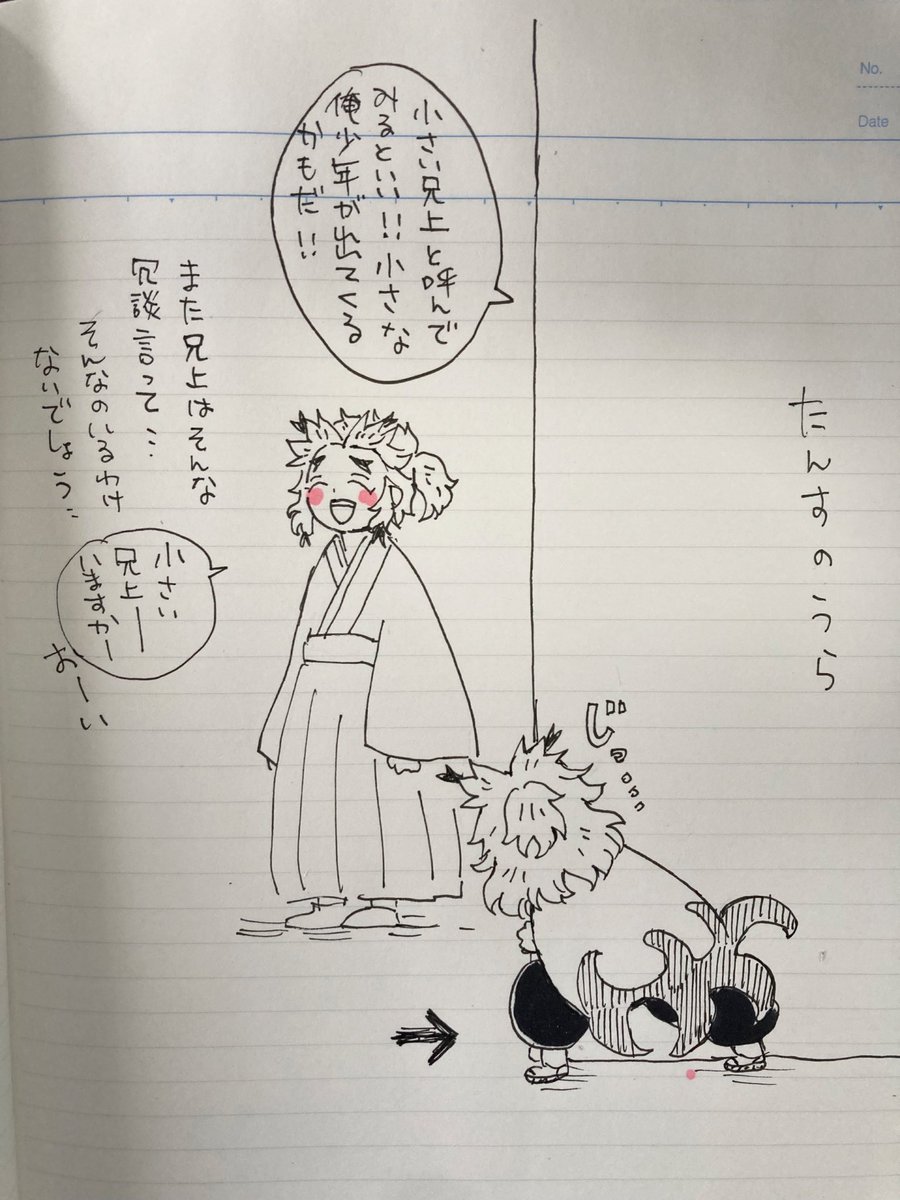 No.
Date
たんすのうら
小さい兄上と呼んで
みるといい!!小さな
俺少年が出てくる
かもだ!!
また兄上はそんな
冗談言って…
そんなのいるわけ
ないでしょう…
小さい
兄上ー
いますかー
おーい
じーー